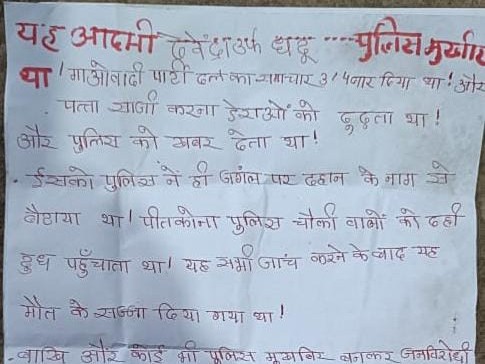 यह आदमी देवेंद्र उर्फ धदू ---- पुलिस मुखबीर
था! माओवादी पार्टी दल का समाचार 3/4 बार दिया था! और
पत्ता साजी करना डेराओं को ढूढता था!
और पुलिस को खबर देता था!
. ईसको पुलिस नें ही जगंल पर दहान के नाम से
बैठाया था! पीतकोना पुलिस चौकी वालों को दही
दुध पहुँचाता था! यह सभी जांच करने के बाद यह
मौत के सज्जा दिया गया था!
. बाखि और कोई भी पुलिस मुखबिर बनकर जनविरोधी